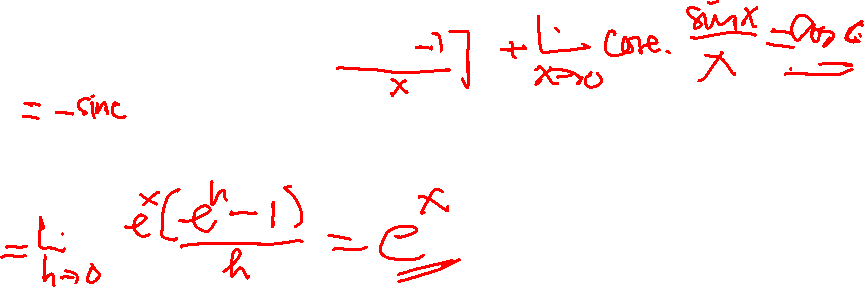 -1 / x ] + L x→0 cosc. sinx / x = cos c
= -sinc
= L h→0 e^x(e^h - 1) / h = e^x